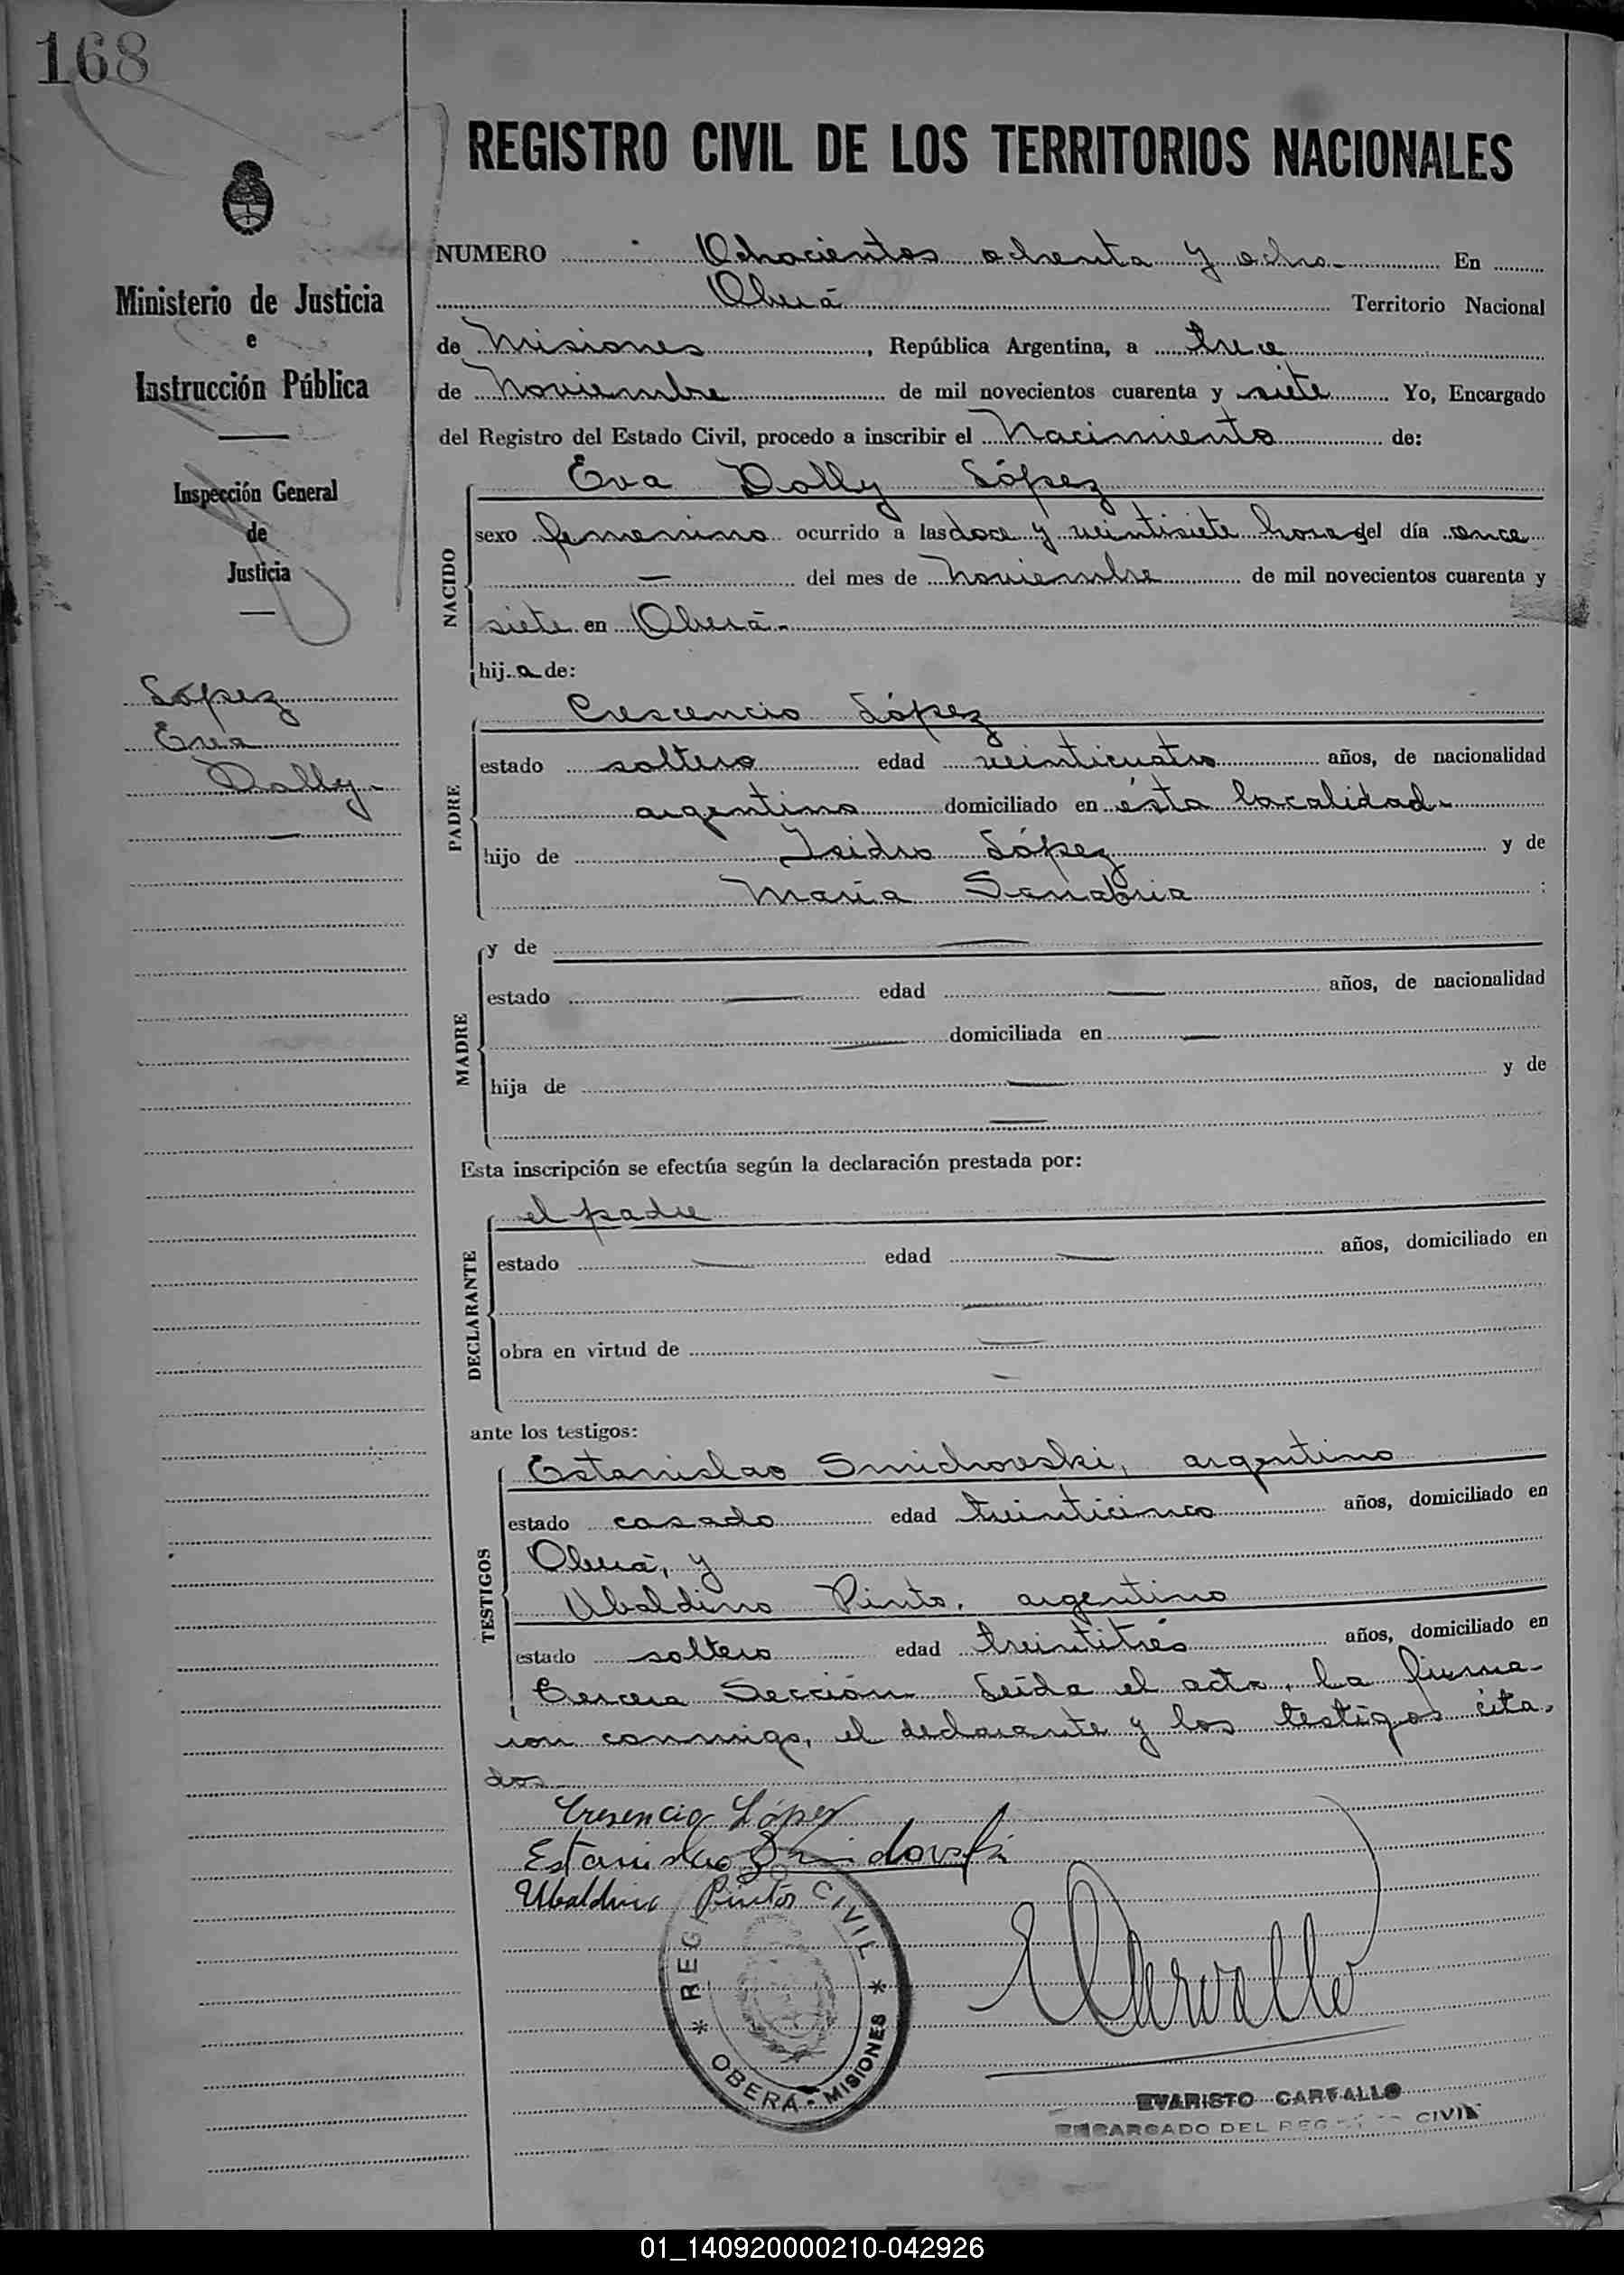 168
REGISTRO CIVIL DE LOS TERRITORIOS NACIONALES
Ministerio de Justicia
e
Instrucción Pública
Inspección General
de
Justicia
López
Eva
Dolly
NUMERO Ochocientos ochenta y ocho En
Oberá Territorio Nacional
de Misiones, República Argentina, a trece
de Noviembre de mil novecientos cuarenta y siete Yo, Encargado
del Registro del Estado Civil, procedo a inscribir el Nacimiento de:
NACIDO
Eva Dolly López
sexo femenino ocurrido a las doce y veintisiete horas del día once
del mes de Noviembre de mil novecientos cuarenta y
siete en Oberá.
hij a de:
PADRE
Crescencio López
estado soltero edad veinticuatro años, de nacionalidad
argentino domiciliado en ésta localidad.
hijo de Isidro López y de
María Sanabria :
MADRE
y de
estado edad años, de nacionalidad
domiciliada en
hija de y de
Esta inscripción se efectúa según la declaración prestada por:
DECLARANTE
el padre
estado edad años, domiciliado en
obra en virtud de
ante los testigos:
TESTIGOS
Estanislao Smichovski, argentino
estado casado edad treinticinco años, domiciliado en
Oberá, y
Ubaldino Pinto, argentino
estado soltero edad treintitrés años, domiciliado en
Tercera Sección Leída el acta, la firma-
ron conmigo, el declarante y los testigos cita-
dos
Cresencio López
Estanislao
Ubaldino Pinto
REG CIVIL
OBERÁ - MISIONES
ECarvallo
EVARISTO CARVALLO
ENCARGADO DEL REG CIVIL
01_140920000210-042926